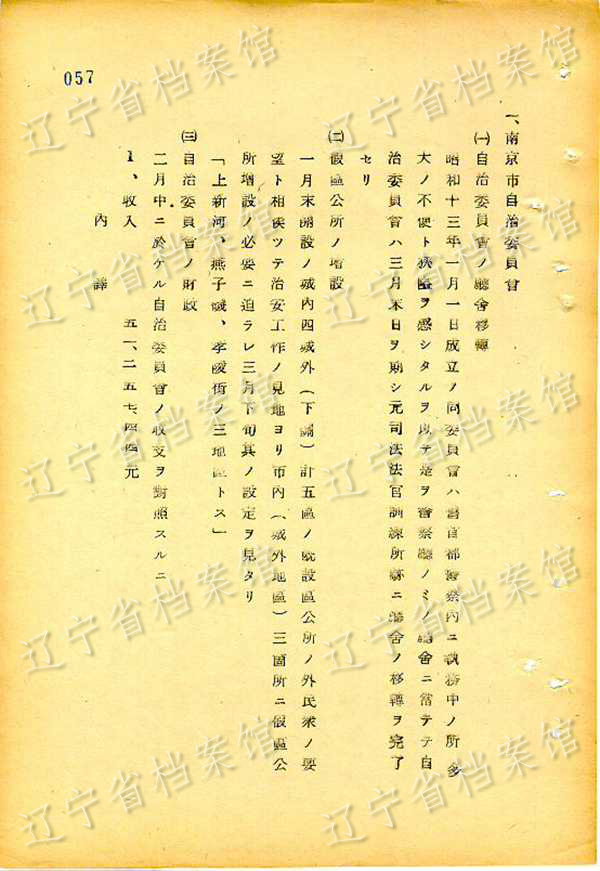 057
一、南京市自治委員會
㈠自治委員會ノ廳舍移轉
昭和十三年一月一日成立ノ同委員會ハ舊首都警察內ニ執務中ノ所多
大ノ不便ト狹隘ヲ感シタルヲ以テ是ヲ警察廳ノミノ廳舍ニ當テテ自
治委員會ハ三月末日ヲ期シ元司法法官訓練所跡ニ廳舍ノ移轉ヲ完了
セリ
㈡假區公所ノ增設
一月末開設ノ城內四城外(下關)計五區ノ既設區公所ノ外民衆ノ要
望ト相俟ツテ治安工作ノ見地ヨリ市內(城外地區)三箇所ニ假區公
所增設ノ必要ニ迫ラレ三月下旬其ノ設定ヲ見タリ
「上新河、燕子磯、孝陵衛ノ三地區トス」
㈢自治委員會ノ財政
二月中ニ於ケル自治委員會ノ收支ヲ對照スルニ
1、收入 五一、二五七、四四元
內譯
辽宁省档案馆
辽宁省档案馆
辽宁省档案馆
辽宁省档案馆
辽宁省档案馆
辽宁省档案馆
辽宁省档案馆
辽宁省档案馆
辽宁省档案馆
辽宁省档案馆